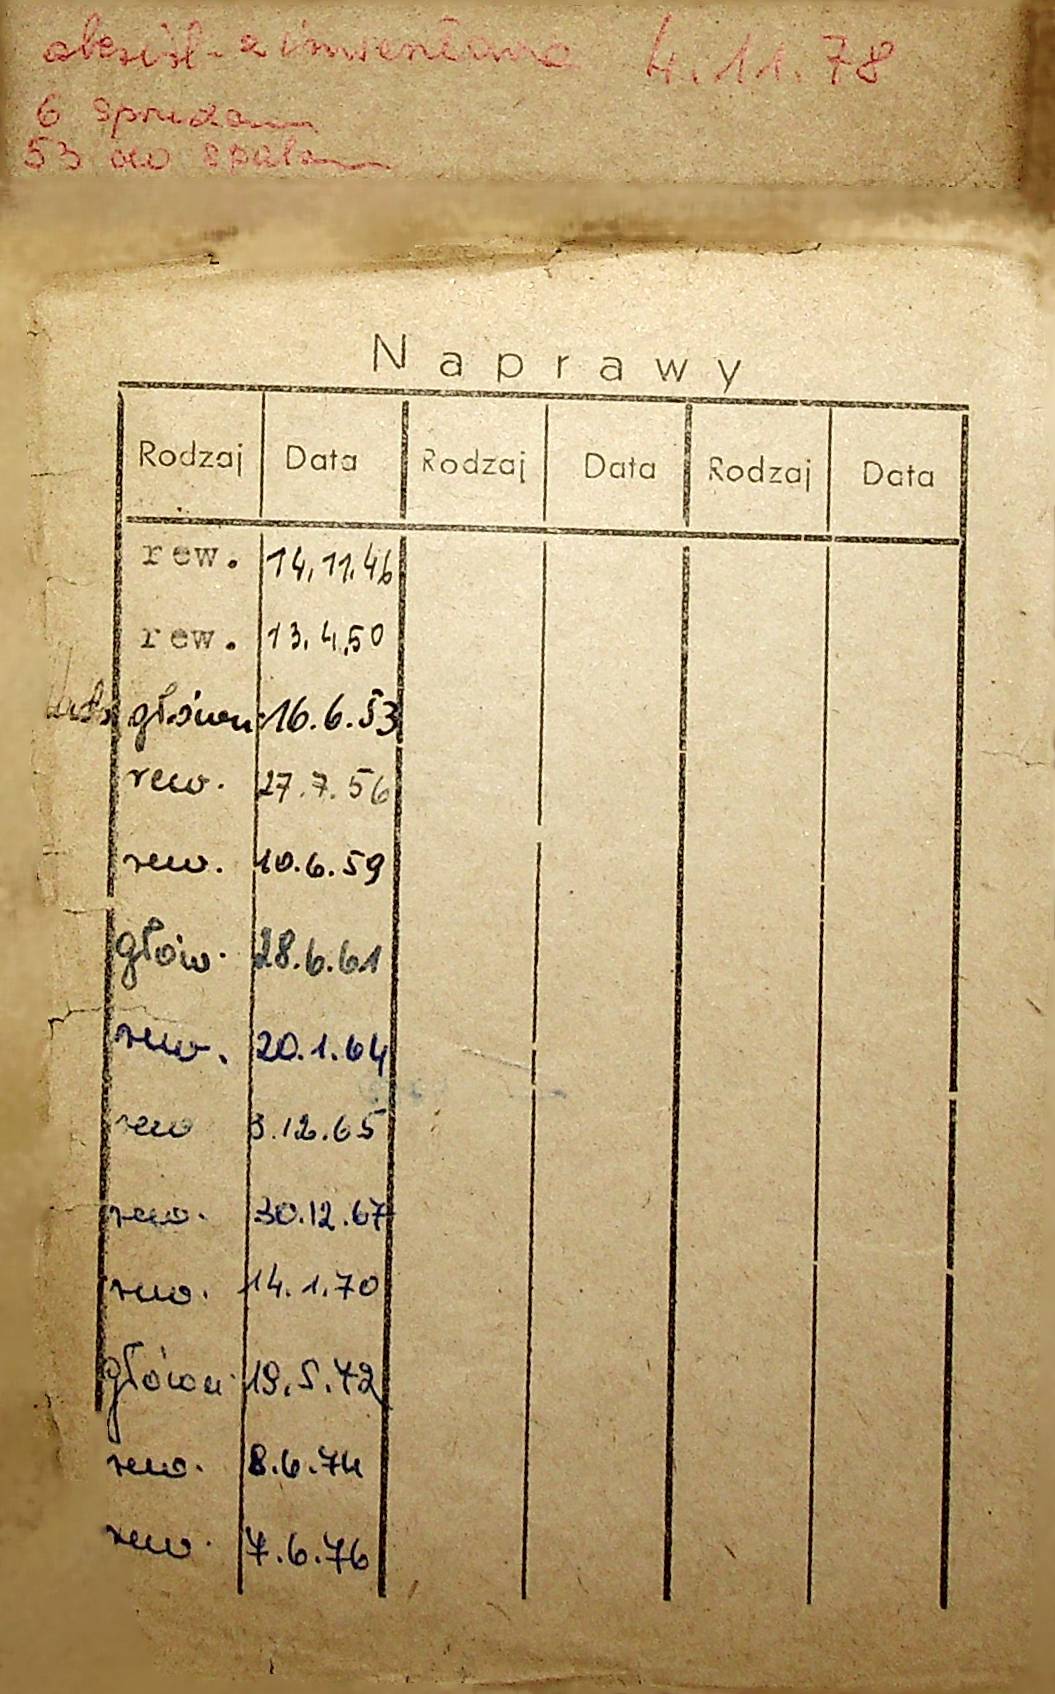 z inwentarza 4.11.78
6 sprzedam
53 do spalan
Naprawy
Rodzaj Data Rodzaj Data Rodzaj Data
rew. 14.11.46
rew. 13.4.50
główn. 16.6.53
rew. 27.7.56
rew. 10.6.59
głów. 28.6.61
rew. 20.1.64
rew 3.12.65
rew. 30.12.67
rew. 14.1.70
główn. 19.5.72
rew. 8.6.74
rew. 7.6.76